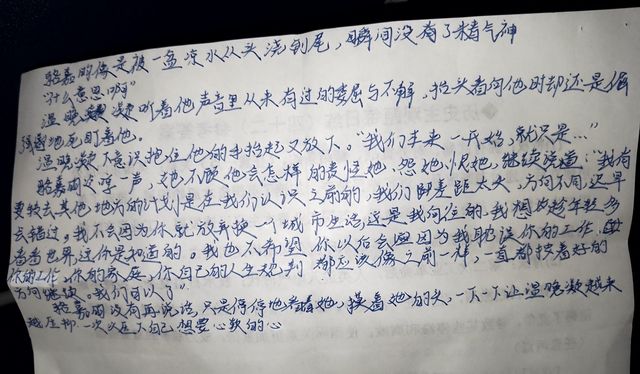 骆嘉明像是被一盆凉水从头浇到尾，瞬间没有了精气神
"什么意思啊"
温晚凝听着他声音里从来有过的委屈与不解，抬头看向他时却还是倔
强固地死盯着他。
温晚凝下意识抱住他的手抬起又放下。"我们本来一开始，就只是…"
骆嘉明没哼一声，她不顾他会怎样的责怪她、怨她、恨她，继续说道："我有
要转去其他地方的计划是在我们认识之前的，我们即差距太大，方向不同，迟早
会错过，我不会因为你就放弃换一个城市生活，这是我向往的，我想趁年轻多
看看世界，这你是知道的。我也不希望你以后会因为我耽误你的工作，
你的工作，你的家庭，你自己的人生规划都应该像之前一样，一直都按着好的
方向继续。我们可以了"
骆嘉明没有再说话，只是停停地看她，摸着她的头，一下一下让温晚凝越来
越压抑一次次压下自己想要心软的心